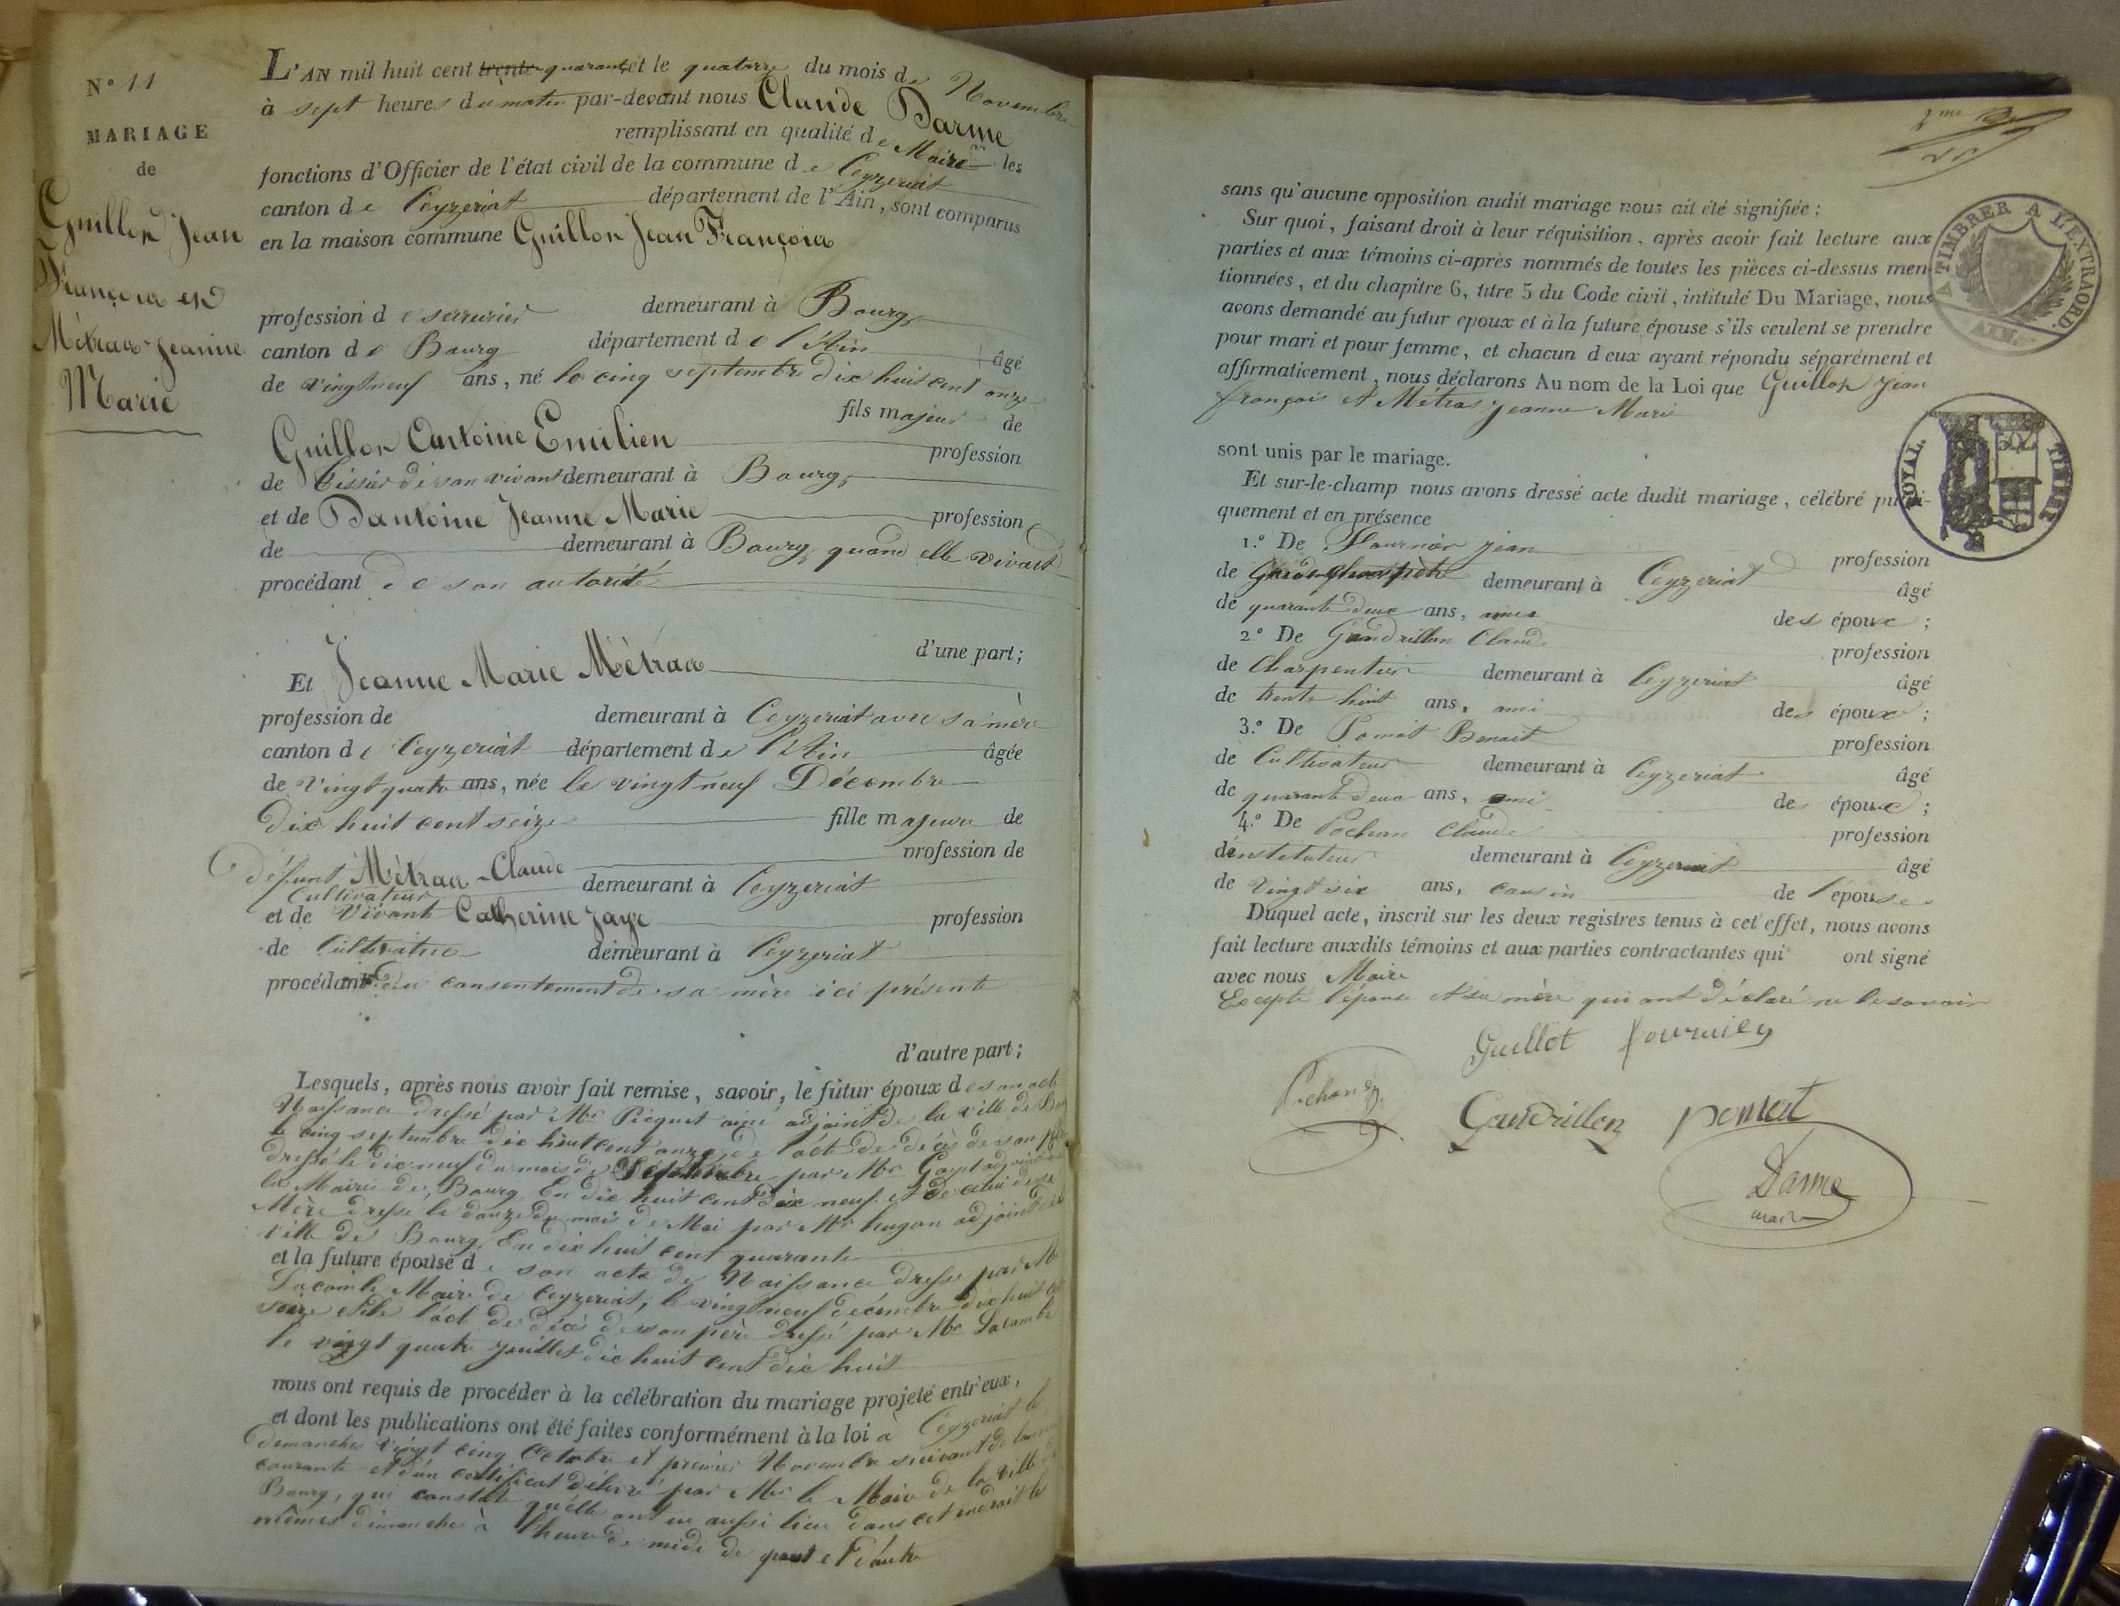 N.° 11
MARIAGE
de
Guillon Jean
François et
Métras Jeanne
Marie
L'AN mil huit cent trente quarante et le quatorze du mois de Novembre
à sept heures du matin par-devant nous Claude Darme
remplissant en qualité de Maire les
fonctions d'Officier de l'état civil de la commune de Ceyzeriat
canton de Ceyzeriat département de l'Ain, sont comparus
en la maison commune Guillon Jean François
profession de serrurier demeurant à Bourg
canton de Bourg département de l'Ain âgé
de vingt neuf ans, né le cinq septembre dix huit cent onze
fils majeur de
Guillon Antoine Emilien profession
de Tissier de son vivant demeurant à Bourg,
et de Dantoine Jeanne Marie profession
de demeurant à Bourg, quand elle vivait
procédant de son autorité
d'une part;
Et Jeanne Marie Métras
profession de demeurant à Ceyzeriat avec sa mère
canton de Ceyzeriat département de l'Ain âgée
de vingt quatre ans, née le vingt neuf Décembre
dix huit cent seize fille majeure de
défunt Métras Claude profession de
Cultivateur demeurant à Ceyzeriat
et de vivante Catherine Jayr profession
de Cultivatrice demeurant à Ceyzeriat
procédant du consentement de sa mère ici présente
d'autre part;
Lesquels, après nous avoir fait remise, savoir, le futur époux de son acte
Naissance dressé par Mr Picquet ainé adjoint de la ville de Bourg
le cinq septembre dix huit cent onze, de l'acte de décès de son père
dressé le dix neuf du mois de par Mr adjoint
la Mairie de Bourg En dix huit cent dix neuf et de celui de sa
Mère dressé le douze du mois de Mai par Mr hugon adjoint de la
ville de Bourg, En dix huit cent quarante
et la future épouse de son acte de Naissance dressé par Mr
Lacombe Maire de Ceyzeriat, le vingt neuf décembre dix huit cent
seize et de l'acte de décès de son père dressé par Mr Lacombe
le vingt quatre juillet dix huit cent dix huit
nous ont requis de procéder à la célébration du mariage projeté entr'eux,
et dont les publications ont été faites conformément à la loi à Ceyzeriat les
demanches vingt cinq Octobre et premier Novembre suivant de l'année
courante et d'un certificat délivré par Mr le Maire de la ville de
Bourg, qui constate qu'elle ont eu aussi lieu dans cet endroit les
mêmes dimanche à l'heure de midi de part et d'autre
2me
sans qu'aucune opposition audit mariage nous ait été signifiée;
Sur quoi, faisant droit à leur réquisition, après avoir fait lecture aux
parties et aux témoins ci-après nommés de toutes les pièces ci-dessus men-
tionnées, et du chapitre 6, titre 5 du Code civil, intitulé Du Mariage, nous
avons demandé au futur epoux et à la future épouse s'ils veulent se prendre
pour mari et pour femme, et chacun d'eux ayant répondu séparément et
affirmativement, nous déclarons Au nom de la Loi que Guillon Jean
françois et Métras Jeanne Marie
sont unis par le mariage.
Et sur-le-champ nous avons dressé acte dudit mariage, célébré publi-
quement et en présence
1.° De Fournier Jean profession
de Garde Champêtre demeurant à Ceyzeriat âgé
de quarante deux ans, ami des époux;
2.° De Gandrillon Claude profession
de Charpentier demeurant à Ceyzeriat âgé
de trente huit ans, ami des époux;
3.° De Pomat Benoit profession
de Cultivateur demeurant à Ceyzeriat âgé
de quarante deux ans, ami des époux;
4.° De Pochon Claude profession
d'instituteur demeurant à Ceyzeriat âgé
de vingt six ans, cousin de l'épouse
Duquel acte, inscrit sur les deux registres tenus à cet effet, nous avons
fait lecture auxdits témoins et aux parties contractantes qui ont signé
avec nous Maire
Excepté l'épouse et sa mère qui ont déclaré ne le savoir
Guillot fournier
Pochon
Gandrillon pomat
Darme
maire
A TIMBRER A L'EXTRAORD.
AIN
TIMBRE ROYAL